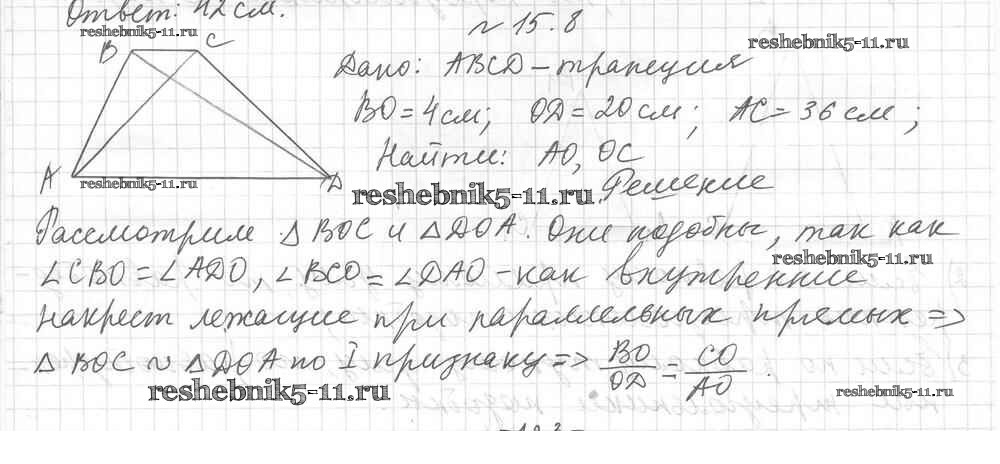 Ответ: 42 см.
reshebnik5-11.ru
№ 15.8
reshebnik5-11.ru
B C
Дано: ABCD – трапеция
BO = 4 см; OD = 20 см; AC = 36 см;
Найти: AO, OC
A D
reshebnik5-11.ru
reshebnik5-11.ru
Решение
Рассмотрим △ BOC и △ DOA. Они подобны, так как
reshebnik5-11.ru
∠CBO = ∠ADO, ∠BCO = ∠DAO – как внутренние
накрест лежащие при параллельных прямых =>
△ BOC ~ △ DOA по I признаку => BO/OD = CO/AO.
reshebnik5-11.ru
reshebnik5-11.ru